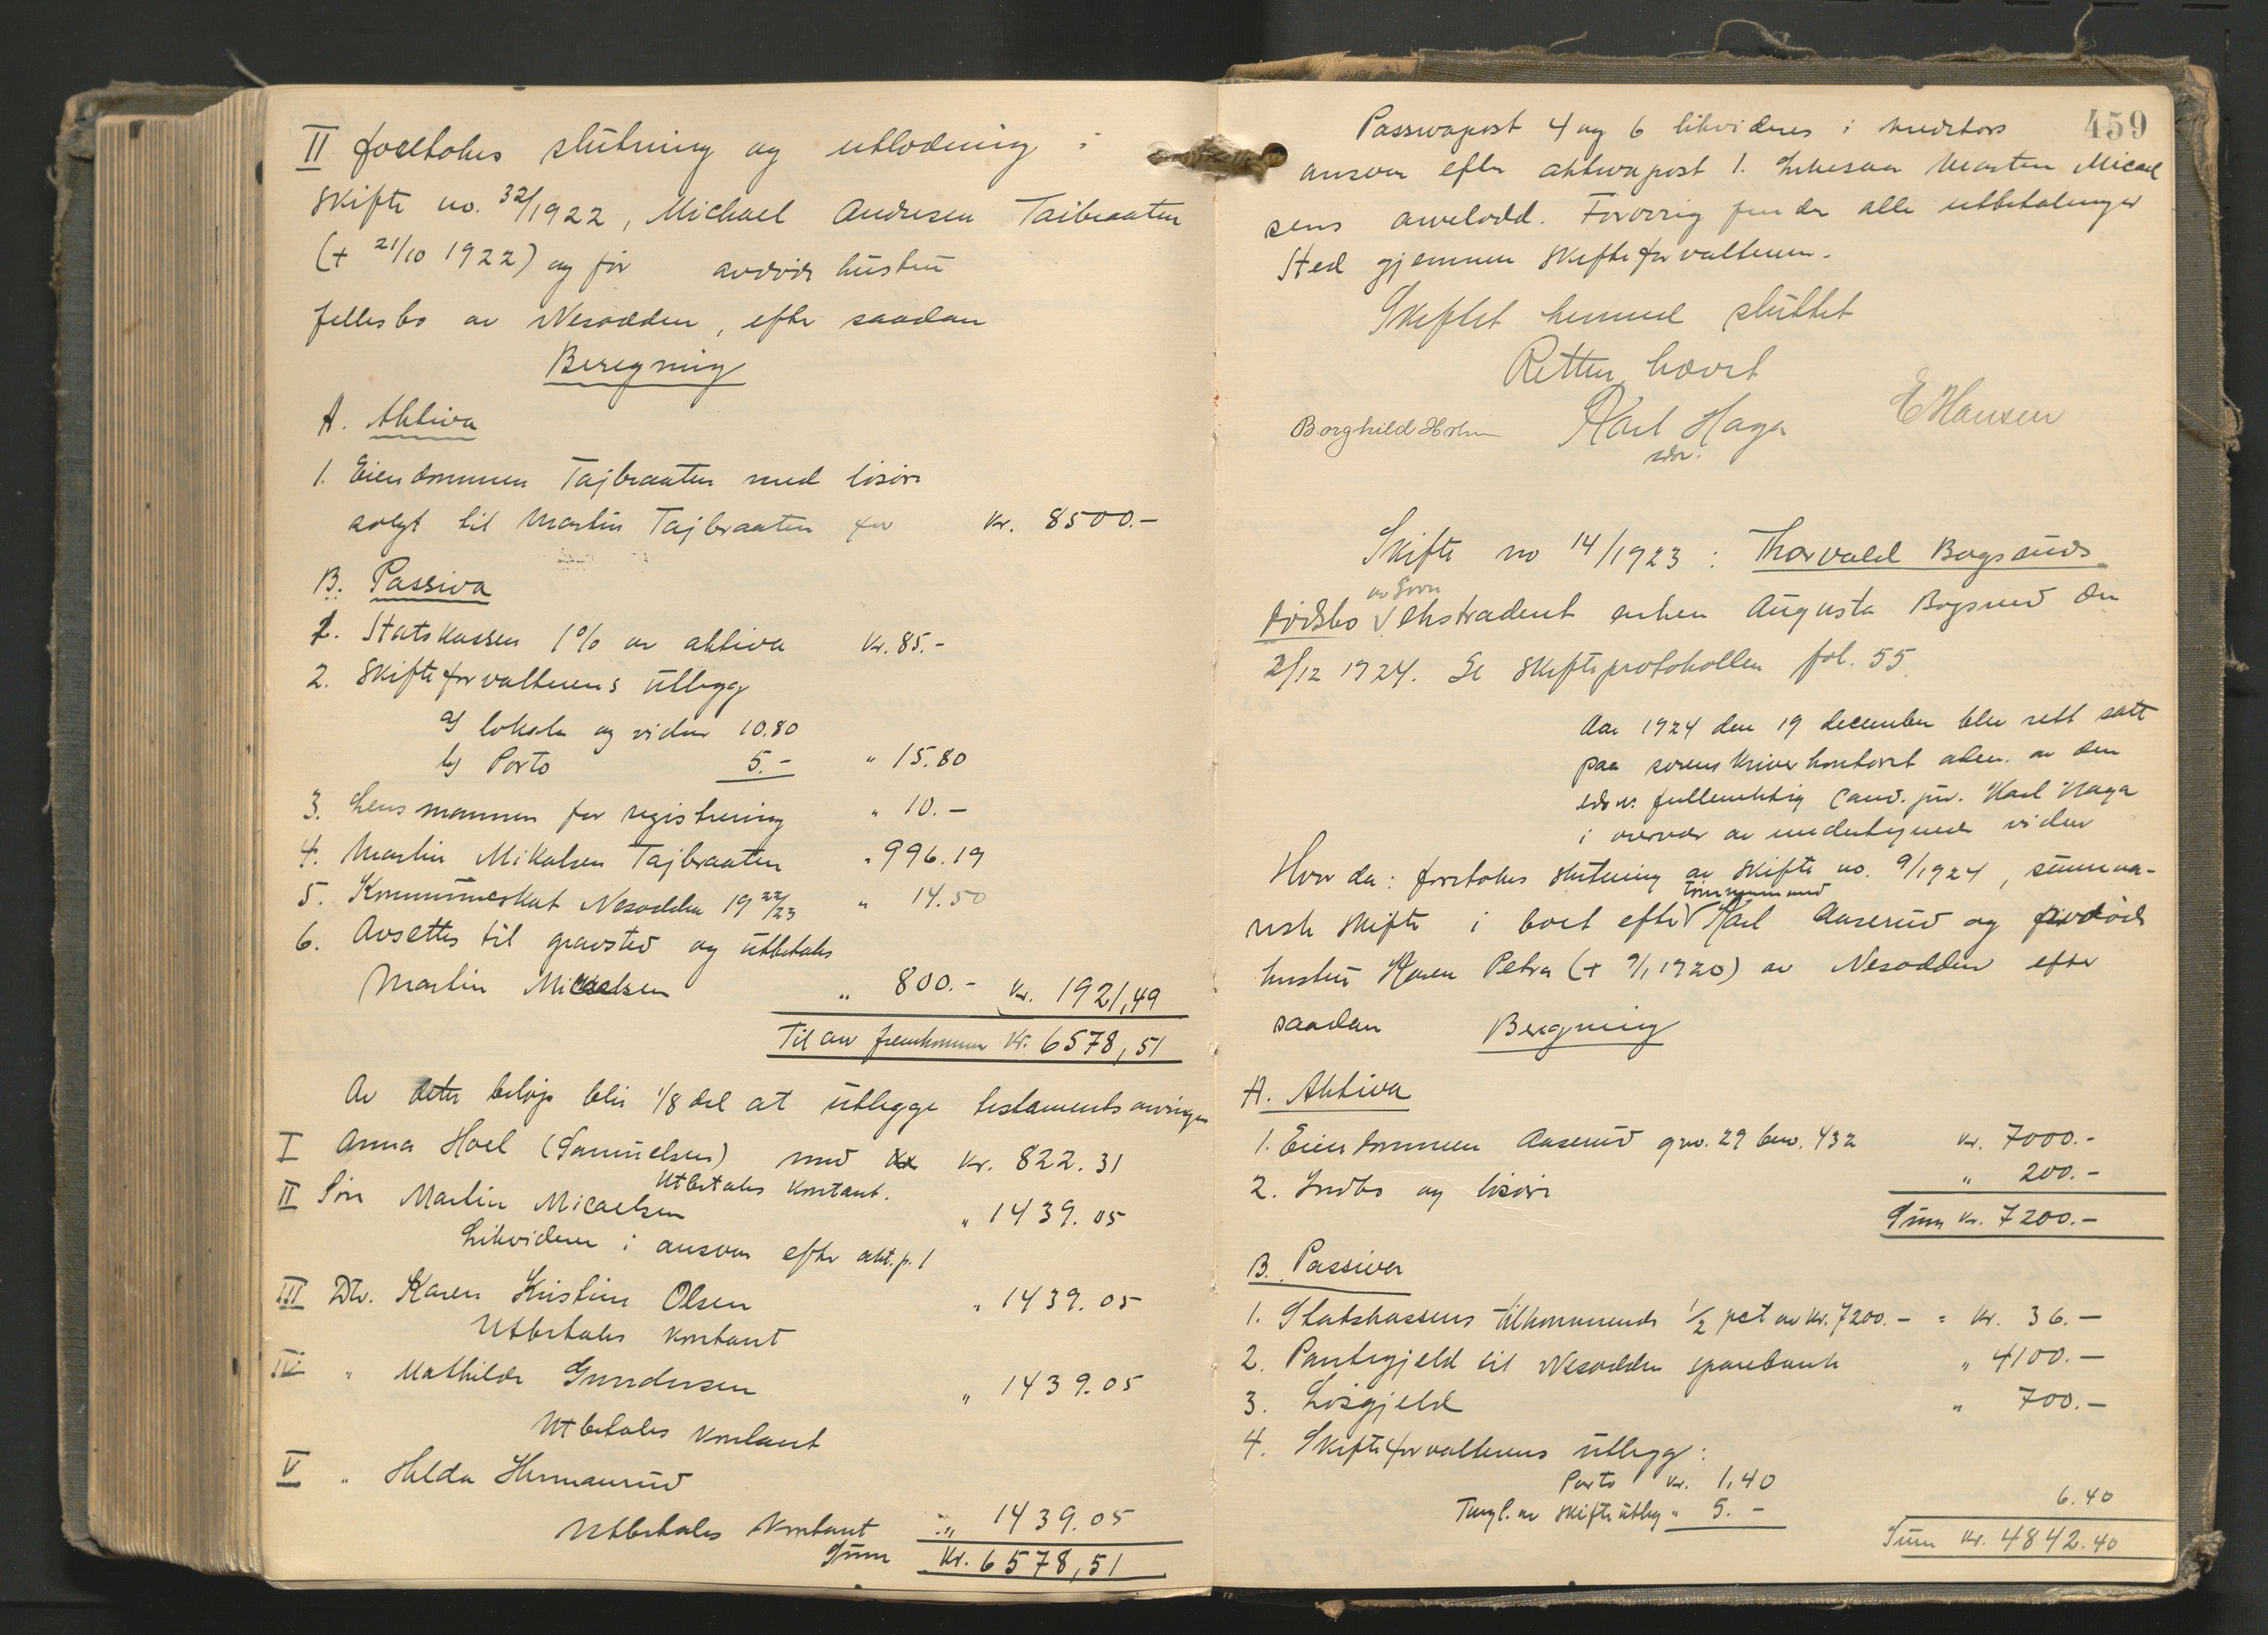 II foretokes slutning og utlodning i
skifte no. 32/1922, Michael Andresen Taibraaten
(+ 21/10 1922) og før avdøde hustru
fellesbo av Nesodden, efter saadan
Beregning
A. Aktiva
1. Eiendommen Tajbraaten med løsøre
solgt til Martin Tajbraaten for kr. 8500.-
B. Passiva
1. Statskassen 1% av aktiva kr. 85.-
2. Skifteforvalterens utlegg
a) lokale og vidner 10.80
b) Porto 5.- " 15.80
3. Lensmannen for registrering " 10.-
4. Martin Mikalsen Tajbraaten " 996.19
5. Kommuneskat Nesodden 1922/23 " 14.50
6. Avsettes til gravsted og utbetales
Martin Micaelsen " 800.- kr. 1921,49
Til arv fremkommer kr. 6578,51
Av dette beløp blir 1/8 del at utlegge testamentsarvingen
I Anna Hoel (Samuelsen) med kr. 822.31
Utbetales kontant.
II Søn Martin Micaelsen " 1439.05
Likvideres i ansvar efter akt. p. 1
III Dtr. Karen Kristine Olsen " 1439.05
Utbetales kontant
IV " Mathilde Gundersen " 1439.05
Utbetales kontant
V " Hilda Hermansrud
Utbetales kontant " 1439.05
Sum kr. 6578,51
459
Passivapost 4 og 6 likvideres i kreditors
ansvar efter aktivapost 1. Likesaa Martin Micael
sens arvelodd. Forøvrig finder alle utbetalinger
Sted gjennem skifteforvalteren.
Skiftet hermed sluttet
Retten hævet
Borghild Holm Karl Haga E Hansen
edsv.
Skifte no 14/1923 : Thorvald Bogsruds
av Svov
dødsbo V ekstradert enken Augusta Bogsrud den
2/12 1924. Se skifteprotokollen fol. 55.
Aar 1924 den 19 december blev rett satt
paa sorenskriverkontoret adm. av den
edsv. fullmektig cand. jur. Karl Haga
i overvær av undertegnede vidner
Hvor da: foretokes slutning av skifte no. 9/1924, summa-
tømmermand
risk skifte i boet efter V Karl Aaserud og avdøde
hustru Karen Petra (+ 9/1 1920) av Nesodden efter
saadan Beregning
A. Aktiva
1. Eiendommen Aaserud gno. 29 bno. 432 kr. 7000.-
2. Indbo og løsøre " 200.-
Sum kr. 7200.-
B. Passiva
1. Statskassens tilkommende 1/2 pct av kr. 7200.- = kr. 36.-
2. Pantegjeld til Nesodden sparebank " 4100.-
3. Løsgjeld " 700.-
4. Skifteforvalterens utlegg:
Porto kr. 1,40
Tingl. av skifteutleg " 5.- 6.40
Sum kr. 4842.40